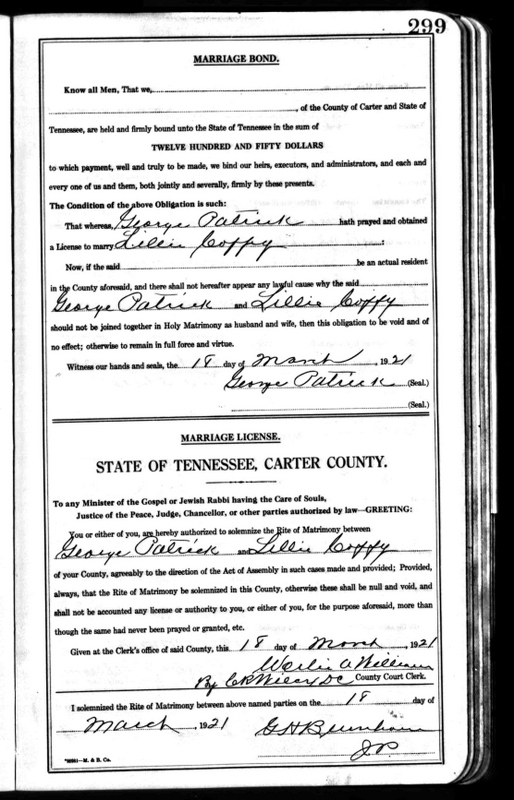 299
MARRIAGE BOND.
Know all Men, That we,
, of the County of Carter and State of
Tennessee, are held and firmly bound unto the State of Tennessee in the sum of
TWELVE HUNDRED AND FIFTY DOLLARS
to which payment, well and truly to be made, we bind our heirs, executors, and administrators, and each and
every one of us and them, both jointly and severally, firmly by these presents.
The Condition of the above Obligation is such:
That whereas, George Patrick hath prayed and obtained
a License to marry Lillie Coffy :
Now, if the said be an actual resident
in the County aforesaid, and there shall not hereafter appear any lawful cause why the said
George Patrick and Lillie Coffy
should not be joined together in Holy Matrimony as husband and wife, then this obligation to be void and of
no effect; otherwise to remain in full force and virtue.
Witness our hands and seals, the 18 day of March , 1921
George Patrick (Seal.)
(Seal.)
MARRIAGE LICENSE.
STATE OF TENNESSEE, CARTER COUNTY.
To any Minister of the Gospel or Jewish Rabbi having the Care of Souls,
Justice of the Peace, Judge, Chancellor, or other parties authorized by law—GREETING:
You or either of you, are hereby authorized to solemnize the Rite of Matrimony between
George Patrick and Lillie Coffy
of your County, agreeably to the direction of the Act of Assembly in such cases made and provided; Provided,
always, that the Rite of Matrimony be solemnized in this County, otherwise these shall be null and void, and
shall not be accounted any license or authority to you, or either of you, for the purpose aforesaid, more than
though the same had never been prayed or granted, etc.
Given at the Clerk's office of said County, this 18 day of March , 1921
County Court Clerk.
By DC
I solemnized the Rite of Matrimony between above named parties on the 18 day of
March , 1921 G H
JP
M. & B. Co.